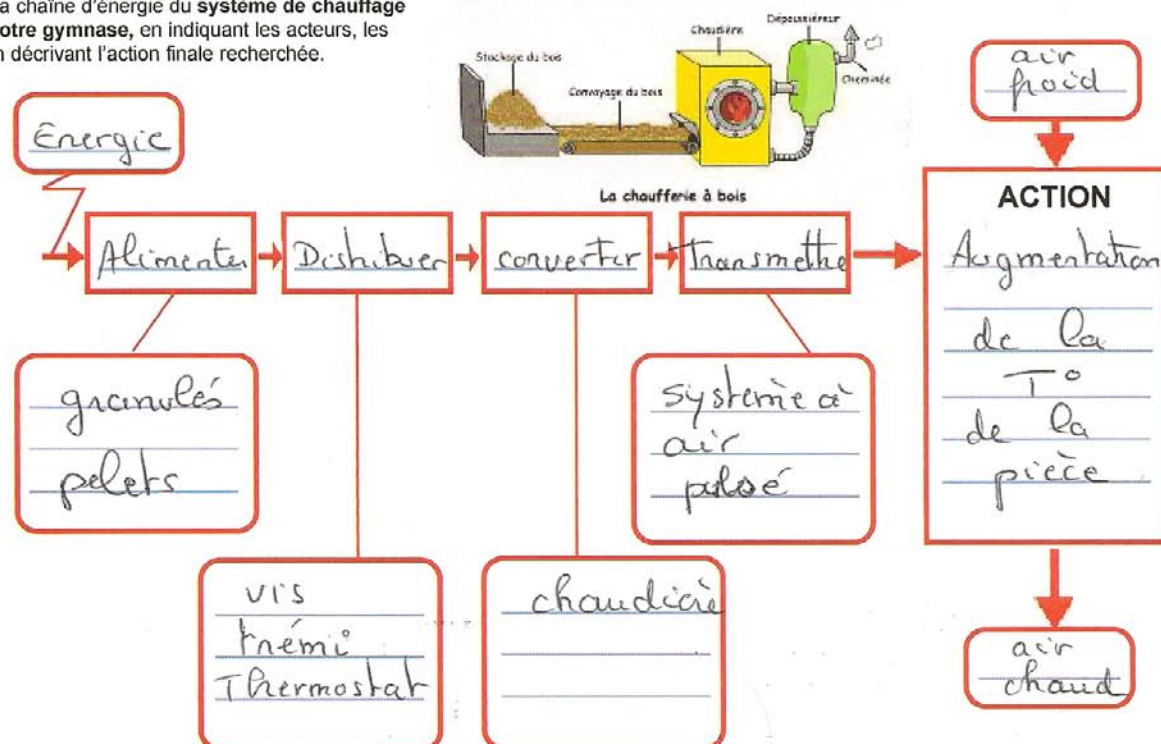 a chaîne d'énergie du système de chauffage
otre gymnase, en indiquant les acteurs, les
n décrivant l'action finale recherchée.
Stockage du bois
Convoyage du bois
Chaudière
Dépoussiéreur
Cheminée
La chaufferie à bois
Énergie
Alimenter
Distribuer
convertir
Transmettre
granulés
pelets
vis
trémi
Thermostat
chaudière
système à
air
pulsé
air
froid
ACTION
Augmentation
de la
T°
de la
pièce
air
chaud